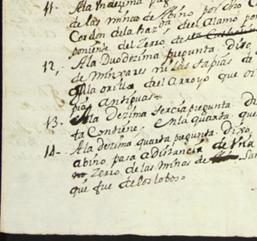 11. A la
de las minas de Albino por dho
Cordon de la haz.da del Alamo por
poniente del Zerro de
12, A la Duodezima pregunta. Dixo
de Minxares ni las tapias de
A la orilla del Arroyo que
Antiguas
13. A la Dezima tercia pregunta Di
ta Contiene, en la quarta que
14. A la dezima quarta pregunta. dixo,
abino, pasa a distancia de Una
Zerro de las minas de San
que fue de los lobos